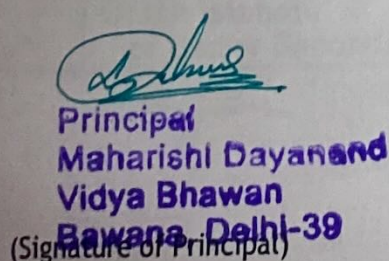 Principal
Maharishi Dayanand
Vidya Bhawan
Bawana, Delhi-39
(Signature of Principal)